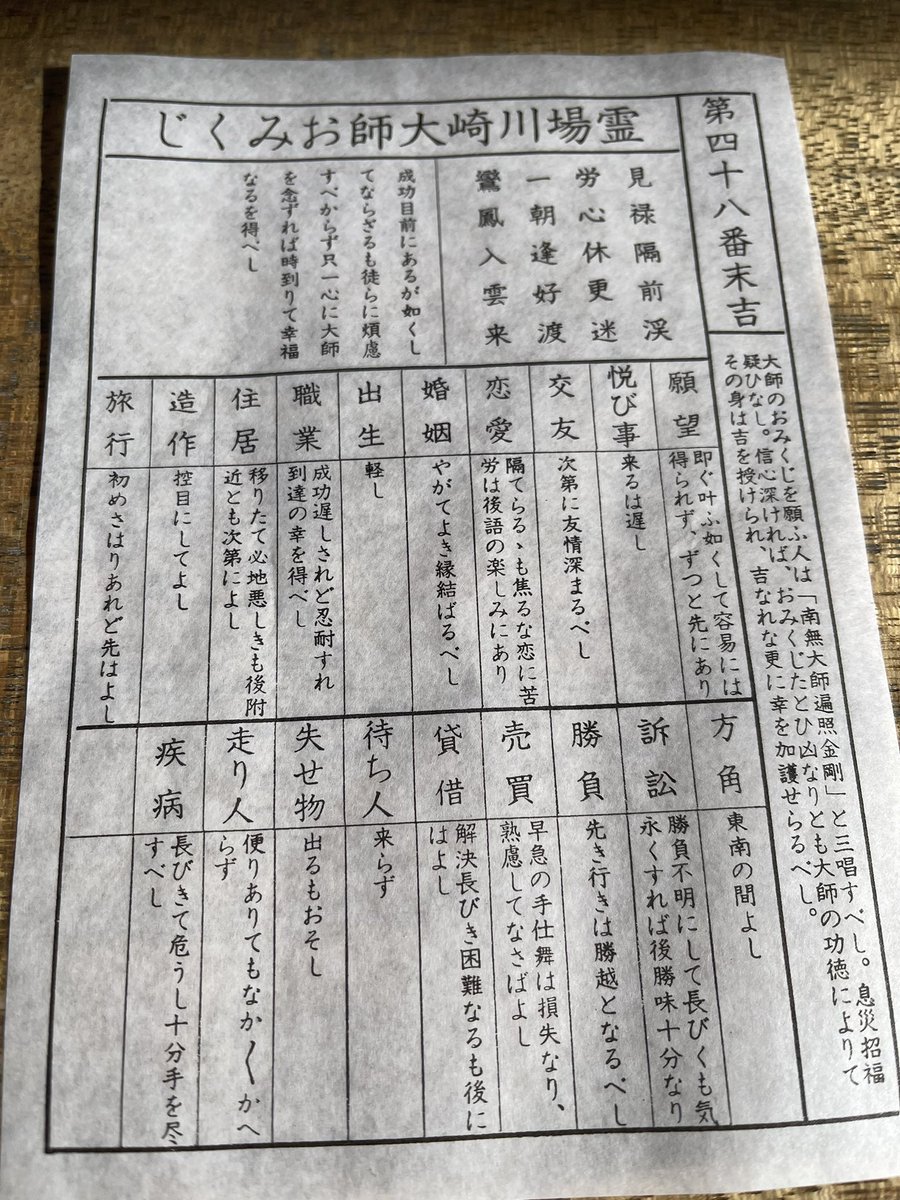 霊場川崎大師おみくじ
第四十八番末吉
大師のおみくじを願ふ人は「南無大師遍照金剛」と三唱すべし。息災招福
疑ひなし。信心深ければ、おみくじたとひ凶なりとも大師の功徳によりて
その身は吉を授けられ、吉なれな更に幸を加護せらるべし。
見禄隔前渓
労心休更迷
一朝逢好渡
鸞鳳入雲来
成功目前にあるが如くし
てならざるも徒らに煩慮
すべからず只一心に大師
を念ずれば時到りて幸福
なるを得べし
願望
即ぐ叶ふ如くして容易には
得られず、ずつと先にあり
悦び事
来るは遅し
交友
次第に友情深まるべし
恋愛
隔てらるゝも焦るな恋に苦
労は後語の楽しみにあり
婚姻
やがてよき縁結ばるべし
出生
軽し
職業
成功遅しされど忍耐すれ
到達の幸を得べし
住居
移りたて心地悪しきも後附
近とも次第によし
造作
控目にしてよし
旅行
初めさはりあれど先はよし
方角
東南の間よし
訴訟
勝負不明にして長びくも気
永くすれば後勝味十分なり
勝負
先き行きは勝越となるべし
売買
早急の手仕舞は損失なり、
熟慮してなさばよし
貸借
解決長びき困難なるも後に
はよし
待ち人
来らず
失せ物
出るもおそし
走り人
便りありてもなか〱かへ
らず
疾病
長びきて危うし十分手を尽
すべし